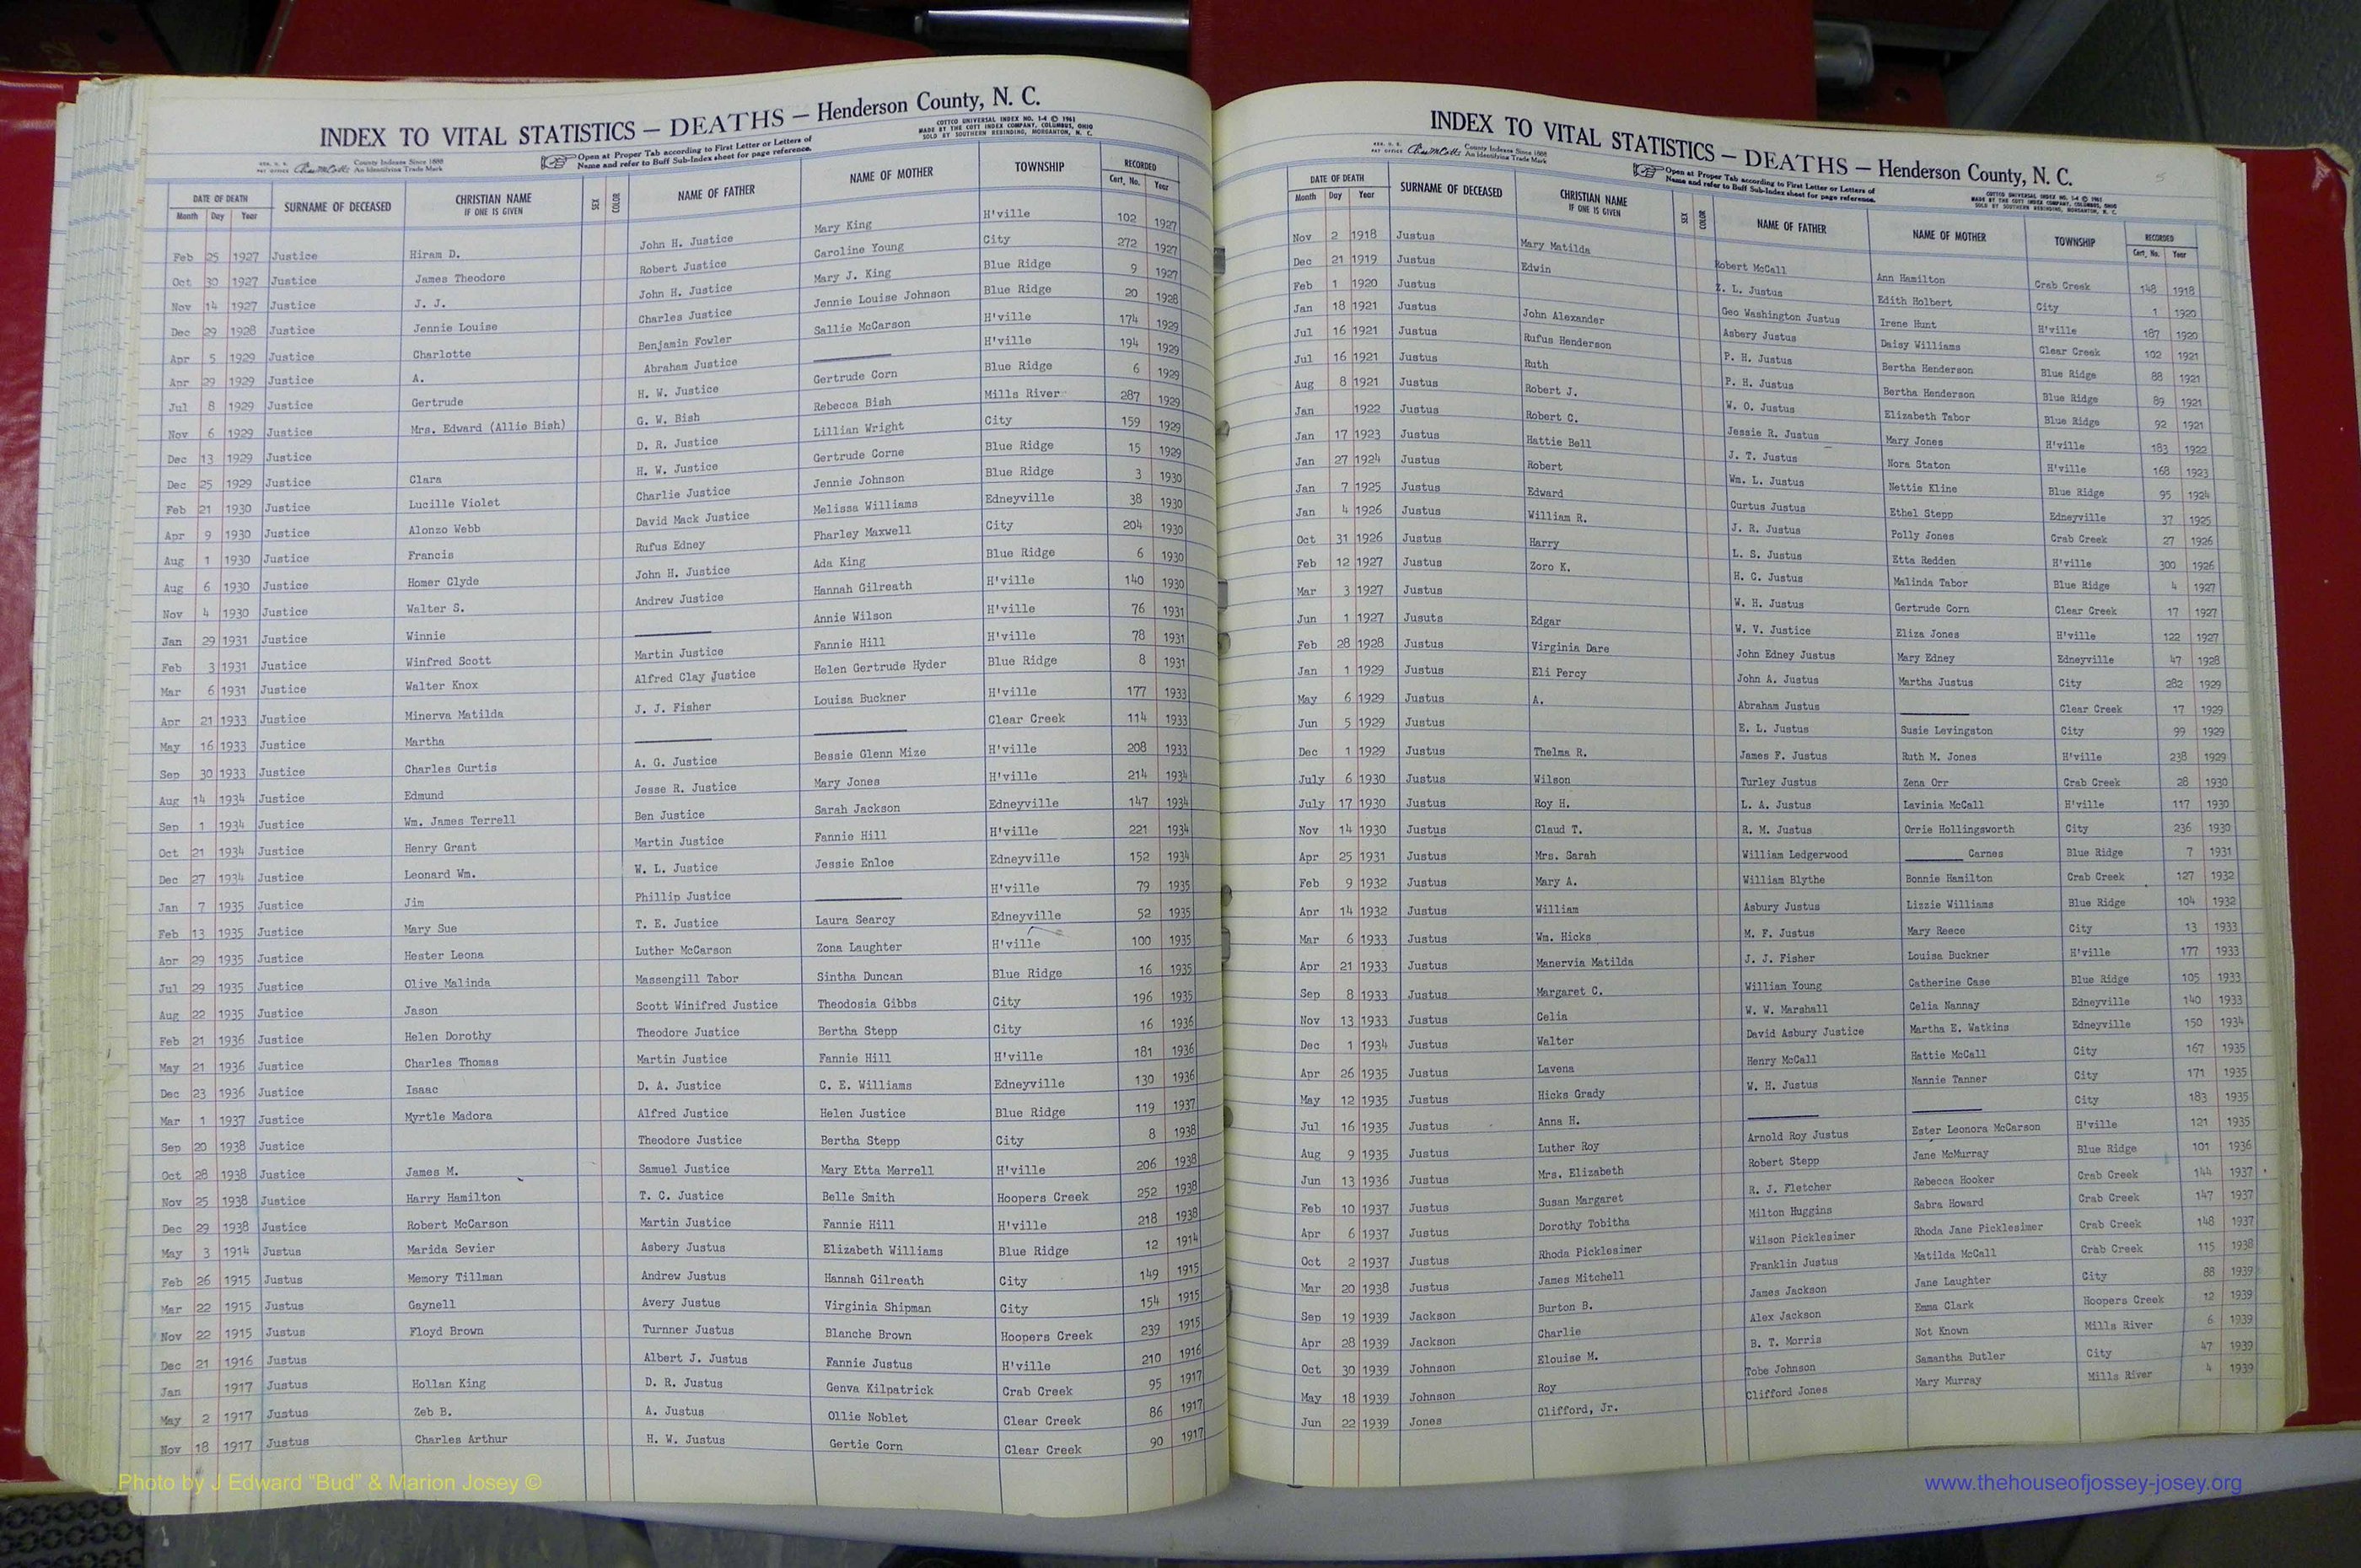 INDEX TO VITAL STATISTICS — DEATHS — Henderson County, N. C.
COTTCO UNIVERSAL INDEX NO. 1-4 © 1961
MADE BY THE COTT INDEX COMPANY, COLUMBUS, OHIO
SOLD BY SOUTHERN REBINDING, MORGANTON, N. C.
County Indexes Since 1888
An Identifying Trade Mark
Open at Proper Tab according to First Letter or Letters of
Name and refer to Buff Sub-Index sheet for page reference.
DATE OF DEATH SURNAME OF DECEASED CHRISTIAN NAME IF ONE IS GIVEN SEX COLOR NAME OF FATHER NAME OF MOTHER TOWNSHIP RECORDED
Month Day Year Cert. No. Year
Feb 25 1927 Justice Hiram D. John H. Justice Mary King H'ville 102 1927
Oct 30 1927 Justice James Theodore Robert Justice Caroline Young City 272 1927
Nov 14 1927 Justice J. J. John H. Justice Mary J. King Blue Ridge 9 1927
Dec 29 1928 Justice Jennie Louise Charles Justice Jennie Louise Johnson Blue Ridge 20 1928
Apr 5 1929 Justice Charlotte Benjamin Fowler Sallie McCarson H'ville 174 1929
Apr 29 1929 Justice A. Abraham Justice ———— H'ville 194 1929
Jul 8 1929 Justice Gertrude H. W. Justice Gertrude Corn Blue Ridge 6 1929
Nov 6 1929 Justice Mrs. Edward (Allie Bish) G. W. Bish Rebecca Bish Mills River 287 1929
Dec 13 1929 Justice D. R. Justice Lillian Wright City 159 1929
Dec 25 1929 Justice Clara H. W. Justice Gertrude Corne Blue Ridge 15 1929
Feb 21 1930 Justice Lucille Violet Charlie Justice Jennie Johnson Blue Ridge 3 1930
Apr 9 1930 Justice Alonzo Webb David Mack Justice Melissa Williams Edneyville 38 1930
Aug 1 1930 Justice Francis Rufus Edney Pharley Maxwell City 204 1930
Aug 6 1930 Justice Homer Clyde John H. Justice Ada King Blue Ridge 6 1930
Nov 4 1930 Justice Walter S. Andrew Justice Hannah Gilreath H'ville 140 1930
Jan 29 1931 Justice Winnie ———— Annie Wilson H'ville 76 1931
Feb 3 1931 Justice Winfred Scott Martin Justice Fannie Hill H'ville 78 1931
Mar 6 1931 Justice Walter Knox Alfred Clay Justice Helen Gertrude Hyder Blue Ridge 8 1931
Apr 21 1933 Justice Minerva Matilda J. J. Fisher Louisa Buckner H'ville 177 1933
May 16 1933 Justice Martha ———— ———— Clear Creek 114 1933
Sep 30 1933 Justice Charles Curtis A. G. Justice Bessie Glenn Mize H'ville 208 1933
Aug 14 1934 Justice Edmund Jesse R. Justice Mary Jones H'ville 214 1934
Sep 1 1934 Justice Wm. James Terrell Ben Justice Sarah Jackson Edneyville 147 1934
Oct 21 1934 Justice Henry Grant Martin Justice Fannie Hill H'ville 221 1934
Dec 27 1934 Justice Leonard Wm. W. L. Justice Jessie Enloe Edneyville 152 1934
Jan 7 1935 Justice Jim Phillip Justice ———— H'ville 79 1935
Feb 13 1935 Justice Mary Sue T. E. Justice Laura Searcy Edneyville 52 1935
Apr 29 1935 Justice Hester Leona Luther McCarson Zona Laughter H'ville 100 1935
Jul 29 1935 Justice Olive Malinda Massengill Tabor Sintha Duncan Blue Ridge 16 1935
Aug 22 1935 Justice Jason Scott Winifred Justice Theodosia Gibbs City 196 1935
Feb 21 1936 Justice Helen Dorothy Theodore Justice Bertha Stepp City 16 1936
May 21 1936 Justice Charles Thomas Martin Justice Fannie Hill H'ville 181 1936
Dec 23 1936 Justice Isaac D. A. Justice C. E. Williams Edneyville 130 1936
Mar 1 1937 Justice Myrtle Madora Alfred Justice Helen Justice Blue Ridge 119 1937
Sep 20 1938 Justice Theodore Justice Bertha Stepp City 8 1938
Oct 28 1938 Justice James M. Samuel Justice Mary Etta Merrell H'ville 206 1938
Nov 25 1938 Justice Harry Hamilton T. C. Justice Belle Smith Hoopers Creek 252 1938
Dec 29 1938 Justice Robert McCarson Martin Justice Fannie Hill H'ville 218 1938
May 3 1914 Justus Marida Sevier Asbery Justus Elizabeth Williams Blue Ridge 12 1914
Feb 26 1915 Justus Memory Tillman Andrew Justus Hannah Gilreath City 149 1915
Mar 22 1915 Justus Gaynell Avery Justus Virginia Shipman City 154 1915
Nov 22 1915 Justus Floyd Brown Turnner Justus Blanche Brown Hoopers Creek 239 1915
Dec 21 1916 Justus Albert J. Justus Fannie Justus H'ville 210 1916
Jan 1917 Justus Hollan King D. R. Justus Genva Kilpatrick Crab Creek 95 1917
May 2 1917 Justus Zeb B. A. Justus Ollie Noblet Clear Creek 86 1917
Nov 18 1917 Justus Charles Arthur H. W. Justus Gertie Corn Clear Creek 90 1917
Photo by J Edward "Bud" & Marion Josey ©
INDEX TO VITAL STATISTICS — DEATHS — Henderson County, N. C.
County Indexes Since 1888
An Identifying Trade Mark
Open at Proper Tab according to First Letter or Letters of
Name and refer to Buff Sub-Index sheet for page reference.
COTTCO UNIVERSAL INDEX NO. 1-4 © 1961
MADE BY THE COTT INDEX COMPANY, COLUMBUS, OHIO
SOLD BY SOUTHERN REBINDING, MORGANTON, N. C.
DATE OF DEATH SURNAME OF DECEASED CHRISTIAN NAME IF ONE IS GIVEN SEX COLOR NAME OF FATHER NAME OF MOTHER TOWNSHIP RECORDED
Month Day Year Cert. No. Year
Nov 2 1918 Justus Mary Matilda Robert McCall Ann Hamilton Crab Creek 148 1918
Dec 21 1919 Justus Edwin Z. L. Justus Edith Holbert City 1 1920
Feb 1 1920 Justus Geo Washington Justus Irene Hunt H'ville 187 1920
Jan 18 1921 Justus John Alexander Asbery Justus Daisy Williams Clear Creek 102 1921
Jul 16 1921 Justus Rufus Henderson P. H. Justus Bertha Henderson Blue Ridge 88 1921
Jul 16 1921 Justus Ruth P. H. Justus Bertha Henderson Blue Ridge 89 1921
Aug 8 1921 Justus Robert J. W. O. Justus Elizabeth Tabor Blue Ridge 92 1921
Jan 1922 Justus Robert C. Jessie R. Justus Mary Jones H'ville 183 1922
Jan 17 1923 Justus Hattie Bell J. T. Justus Nora Staton H'ville 168 1923
Jan 27 1924 Justus Robert Wm. L. Justus Nettie Kline Blue Ridge 95 1924
Jan 7 1925 Justus Edward Curtus Justus Ethel Stepp Edneyville 37 1925
Jan 4 1926 Justus William R. J. R. Justus Polly Jones Crab Creek 27 1926
Oct 31 1926 Justus Harry L. S. Justus Etta Redden H'ville 300 1926
Feb 12 1927 Justus Zoro K. H. C. Justus Malinda Tabor Blue Ridge 4 1927
Mar 3 1927 Justus W. H. Justus Gertrude Corn Clear Creek 17 1927
Jun 1 1927 Jusuts Edgar W. V. Justice Eliza Jones H'ville 122 1927
Feb 28 1928 Justus Virginia Dare John Edney Justus Mary Edney Edneyville 47 1928
Jan 1 1929 Justus Eli Percy John A. Justus Martha Justus City 282 1929
May 6 1929 Justus A. Abraham Justus ———— Clear Creek 17 1929
Jun 5 1929 Justus E. L. Justus Susie Levingston City 99 1929
Dec 1 1929 Justus Thelma R. James F. Justus Ruth M. Jones H'ville 238 1929
July 6 1930 Justus Wilson Turley Justus Zena Orr Crab Creek 28 1930
July 17 1930 Justus Roy H. L. A. Justus Lavinia McCall H'ville 117 1930
Nov 14 1930 Justus Claud T. R. M. Justus Orrie Hollingsworth City 236 1930
Apr 25 1931 Justus Mrs. Sarah William Ledgerwood ———— Carnes Blue Ridge 7 1931
Feb 9 1932 Justus Mary A. William Blythe Bonnie Hamilton Crab Creek 127 1932
Apr 14 1932 Justus William Asbury Justus Lizzie Williams Blue Ridge 104 1932
Mar 6 1933 Justus Wm. Hicks M. F. Justus Mary Reece City 13 1933
Apr 21 1933 Justus Manervia Matilda J. J. Fisher Louisa Buckner H'ville 177 1933
Sep 8 1933 Justus Margaret C. William Young Catherine Case Blue Ridge 105 1933
Nov 13 1933 Justus Celia W. W. Marshall Celia Nannay Edneyville 140 1933
Dec 1 1934 Justus Walter David Asbury Justice Martha E. Watkins Edneyville 150 1934
Apr 26 1935 Justus Lavena Henry McCall Hattie McCall City 167 1935
May 12 1935 Justus Hicks Grady W. H. Justus Nannie Tanner City 171 1935
Jul 16 1935 Justus Anna H. ———— ———— City 183 1935
Aug 9 1935 Justus Luther Roy Arnold Roy Justus Ester Leonora McCarson H'ville 121 1935
Jun 13 1936 Justus Mrs. Elizabeth Robert Stepp Jane McMurray Blue Ridge 101 1936
Feb 10 1937 Justus Susan Margaret R. J. Fletcher Rebecca Hooker Crab Creek 144 1937
Apr 6 1937 Justus Dorothy Tobitha Milton Huggins Sabra Howard Crab Creek 147 1937
Oct 2 1937 Justus Rhoda Picklesimer Wilson Picklesimer Rhoda Jane Picklesimer Crab Creek 148 1937
Mar 20 1938 Justus James Mitchell Franklin Justus Matilda McCall Crab Creek 115 1938
Sep 19 1939 Jackson Burton B. James Jackson Jane Laughter City 88 1939
Apr 28 1939 Jackson Charlie Alex Jackson Emma Clark Hoopers Creek 12 1939
Oct 30 1939 Johnson Elouise M. B. T. Morris Not Known Mills River 6 1939
May 18 1939 Johnson Roy Tobe Johnson Samantha Butler City 47 1939
Jun 22 1939 Jones Clifford, Jr. Clifford Jones Mary Murray Mills River 4 1939
www.thehouseofjossey-josey.org